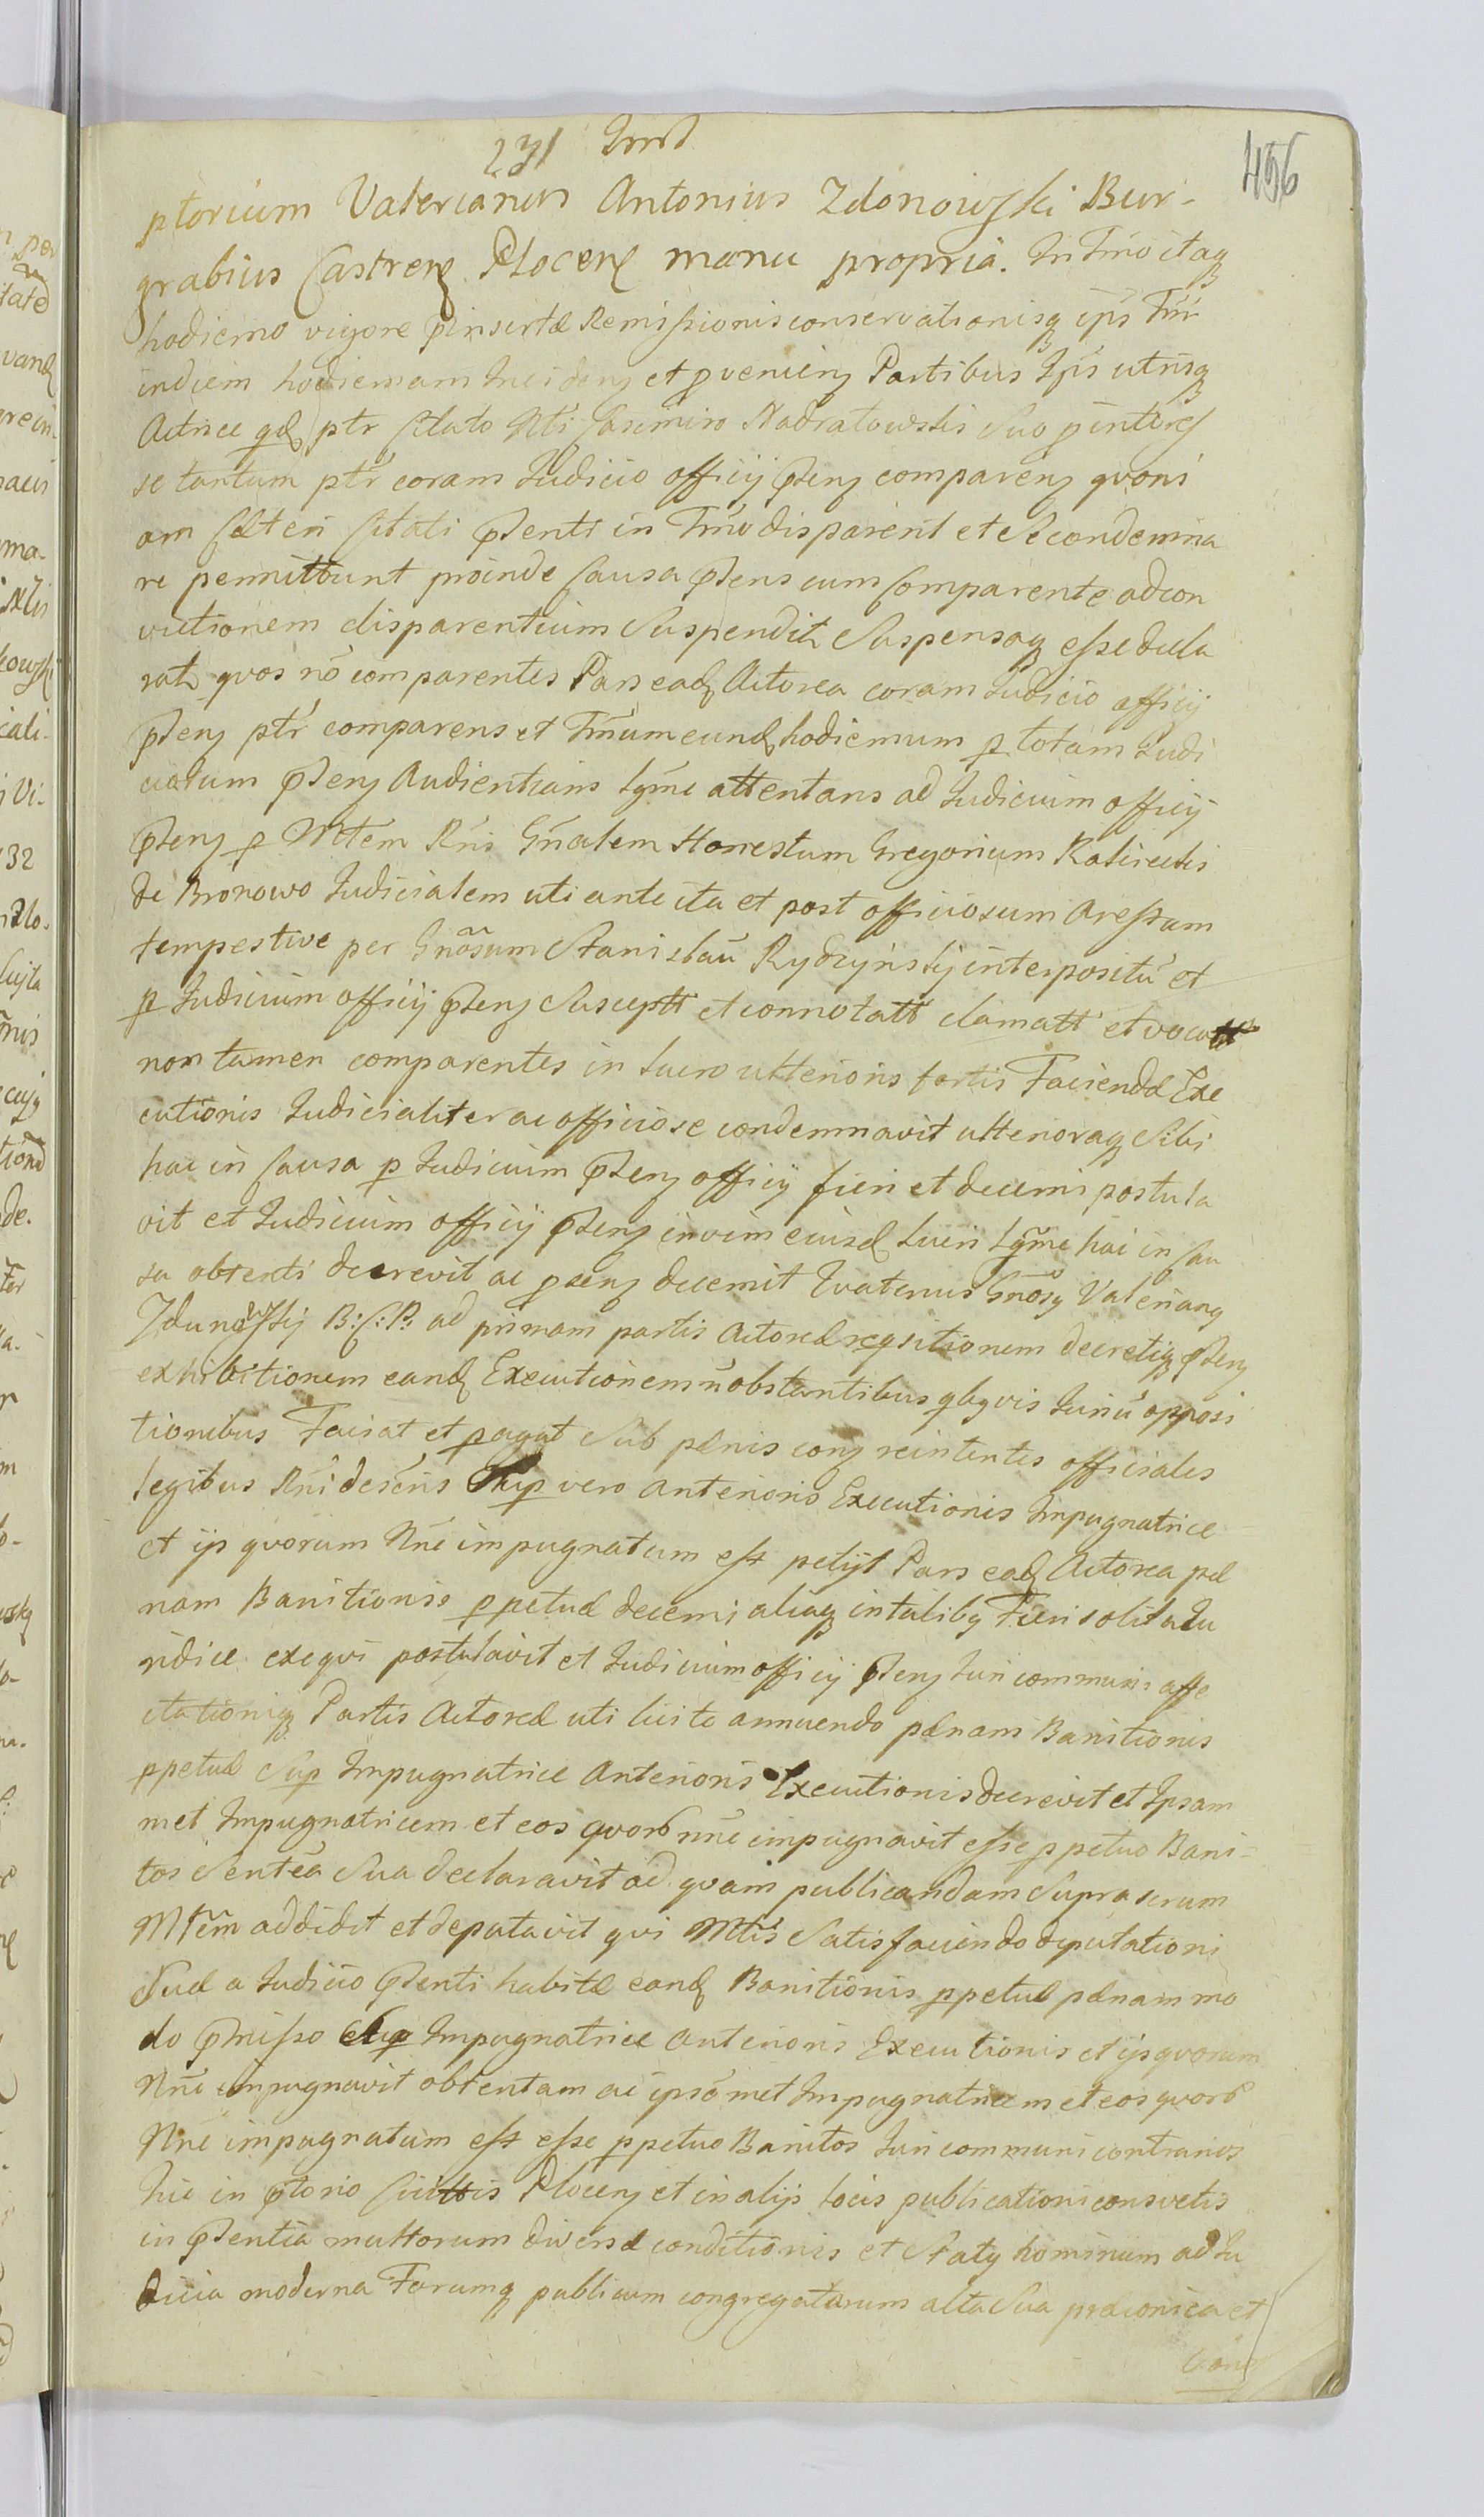 231
496
ptorium Valerianus Antonius Zdonowski Bur-
grabius Castren Plocen manu propria. In Tmo itaq
hodierno vigore pinsertæ Remissionis conservationisq ips Tm
indiem hodiernam Incidenz et pvenienz Partibus Ipis utrisq
Actrice qd ptr Citato Casimiro Nadratowski Suo pinteres
se tantum ptr coram Iudicio officij pntenz comparenz qvoni
am Cæteri Citati pnti in Tmo disparent et se condemna
re permittunt proinde Causa pntens cum Comparente ad con
victionem disparentium Suspendit Suspensaq esse decla
rat qvos no comparentes Pars ead Actorea coram Iudicio officij
pntenz ptr comparens et Tmum eund hodiernum p totam Iudi
cialem pntenz Audientiam lgme attentans ad Iudicium officij
pntenz p Mtem Rni Gnalem Honestum Gregorium
de Bronowo Iudicialem uti ante ita et post officiosum Arestum
tempestive per Gnosum Stanislau Rydzynski interpositu et
p Iudicium officij pntenz Susceptt et connotatt clamatt et vocatt
non tamen comparentes in lucro ulterioris fortis Faciendæ Exe
cutionis Iudicialiter ac officiose condemnavit ulterioraq Sibi
hac in Causa p Iudicium pntenz officij fieri et decerni postula
vit et Iudicium officij pntenz in vim eiusd lucri lgme hac in Cau
sa obtenti decrevit ac pntenz decernit Qvatenus Gnosq Valerianq
Zdunowskij B: C: P: ad primam partis Actoreæ reqsitionem decretiq pntenz
exhibitionem eand Executionem n obstantibus qbqvis Iuriu opposi
tionibus Faciat et pagat Sub pænis conz
officiales
legibus Rni descris Sup vero Anterioris Executionis Impugnatrice
et ijs qvorum Nne impugnatum est petijt Pars ead Actorea pæ
nam Banitionis ppetuæ decerni aliaq in talibq Fieri solita Iu
ridice exeqvi postulavit et Iudicium officij pntenz Iuri communi affe
ctationiq Partis Actoreæ uti licite annuendo pænam Banitionis
ppetuæ Sup Impugnatrice Anterioris Executionis decrevit et Ipsam
met Impugnatricem et eos qvoru nne impugnavit esse ppetuo Bani-
tos Sentea Sua declaravit ad qvam publicandam
Mtem addidit et deputavit qvi Mtis Satisfaciendo deputationi
Suæ a Iudicio pnti habitæ eand Banitionis ppetuæ pænam mo
do pmisso Sup Impugnatrice Anterioris Executionis et ijs qvorum
Nne impugnavit obtentam ac ipsamet Impugnatricem et eos qvoru
Nne impugnatum est esse ppetuo Banitos Iuri communi contrarios
hic in ptorio Civittis Plocenz et in alijs locis publicationi consvetis
in pntentia multorum diversæ conditionis et Statq hominum ad Iu
dicia moderna Forumq publicum congregatorum alta Sua præconica et